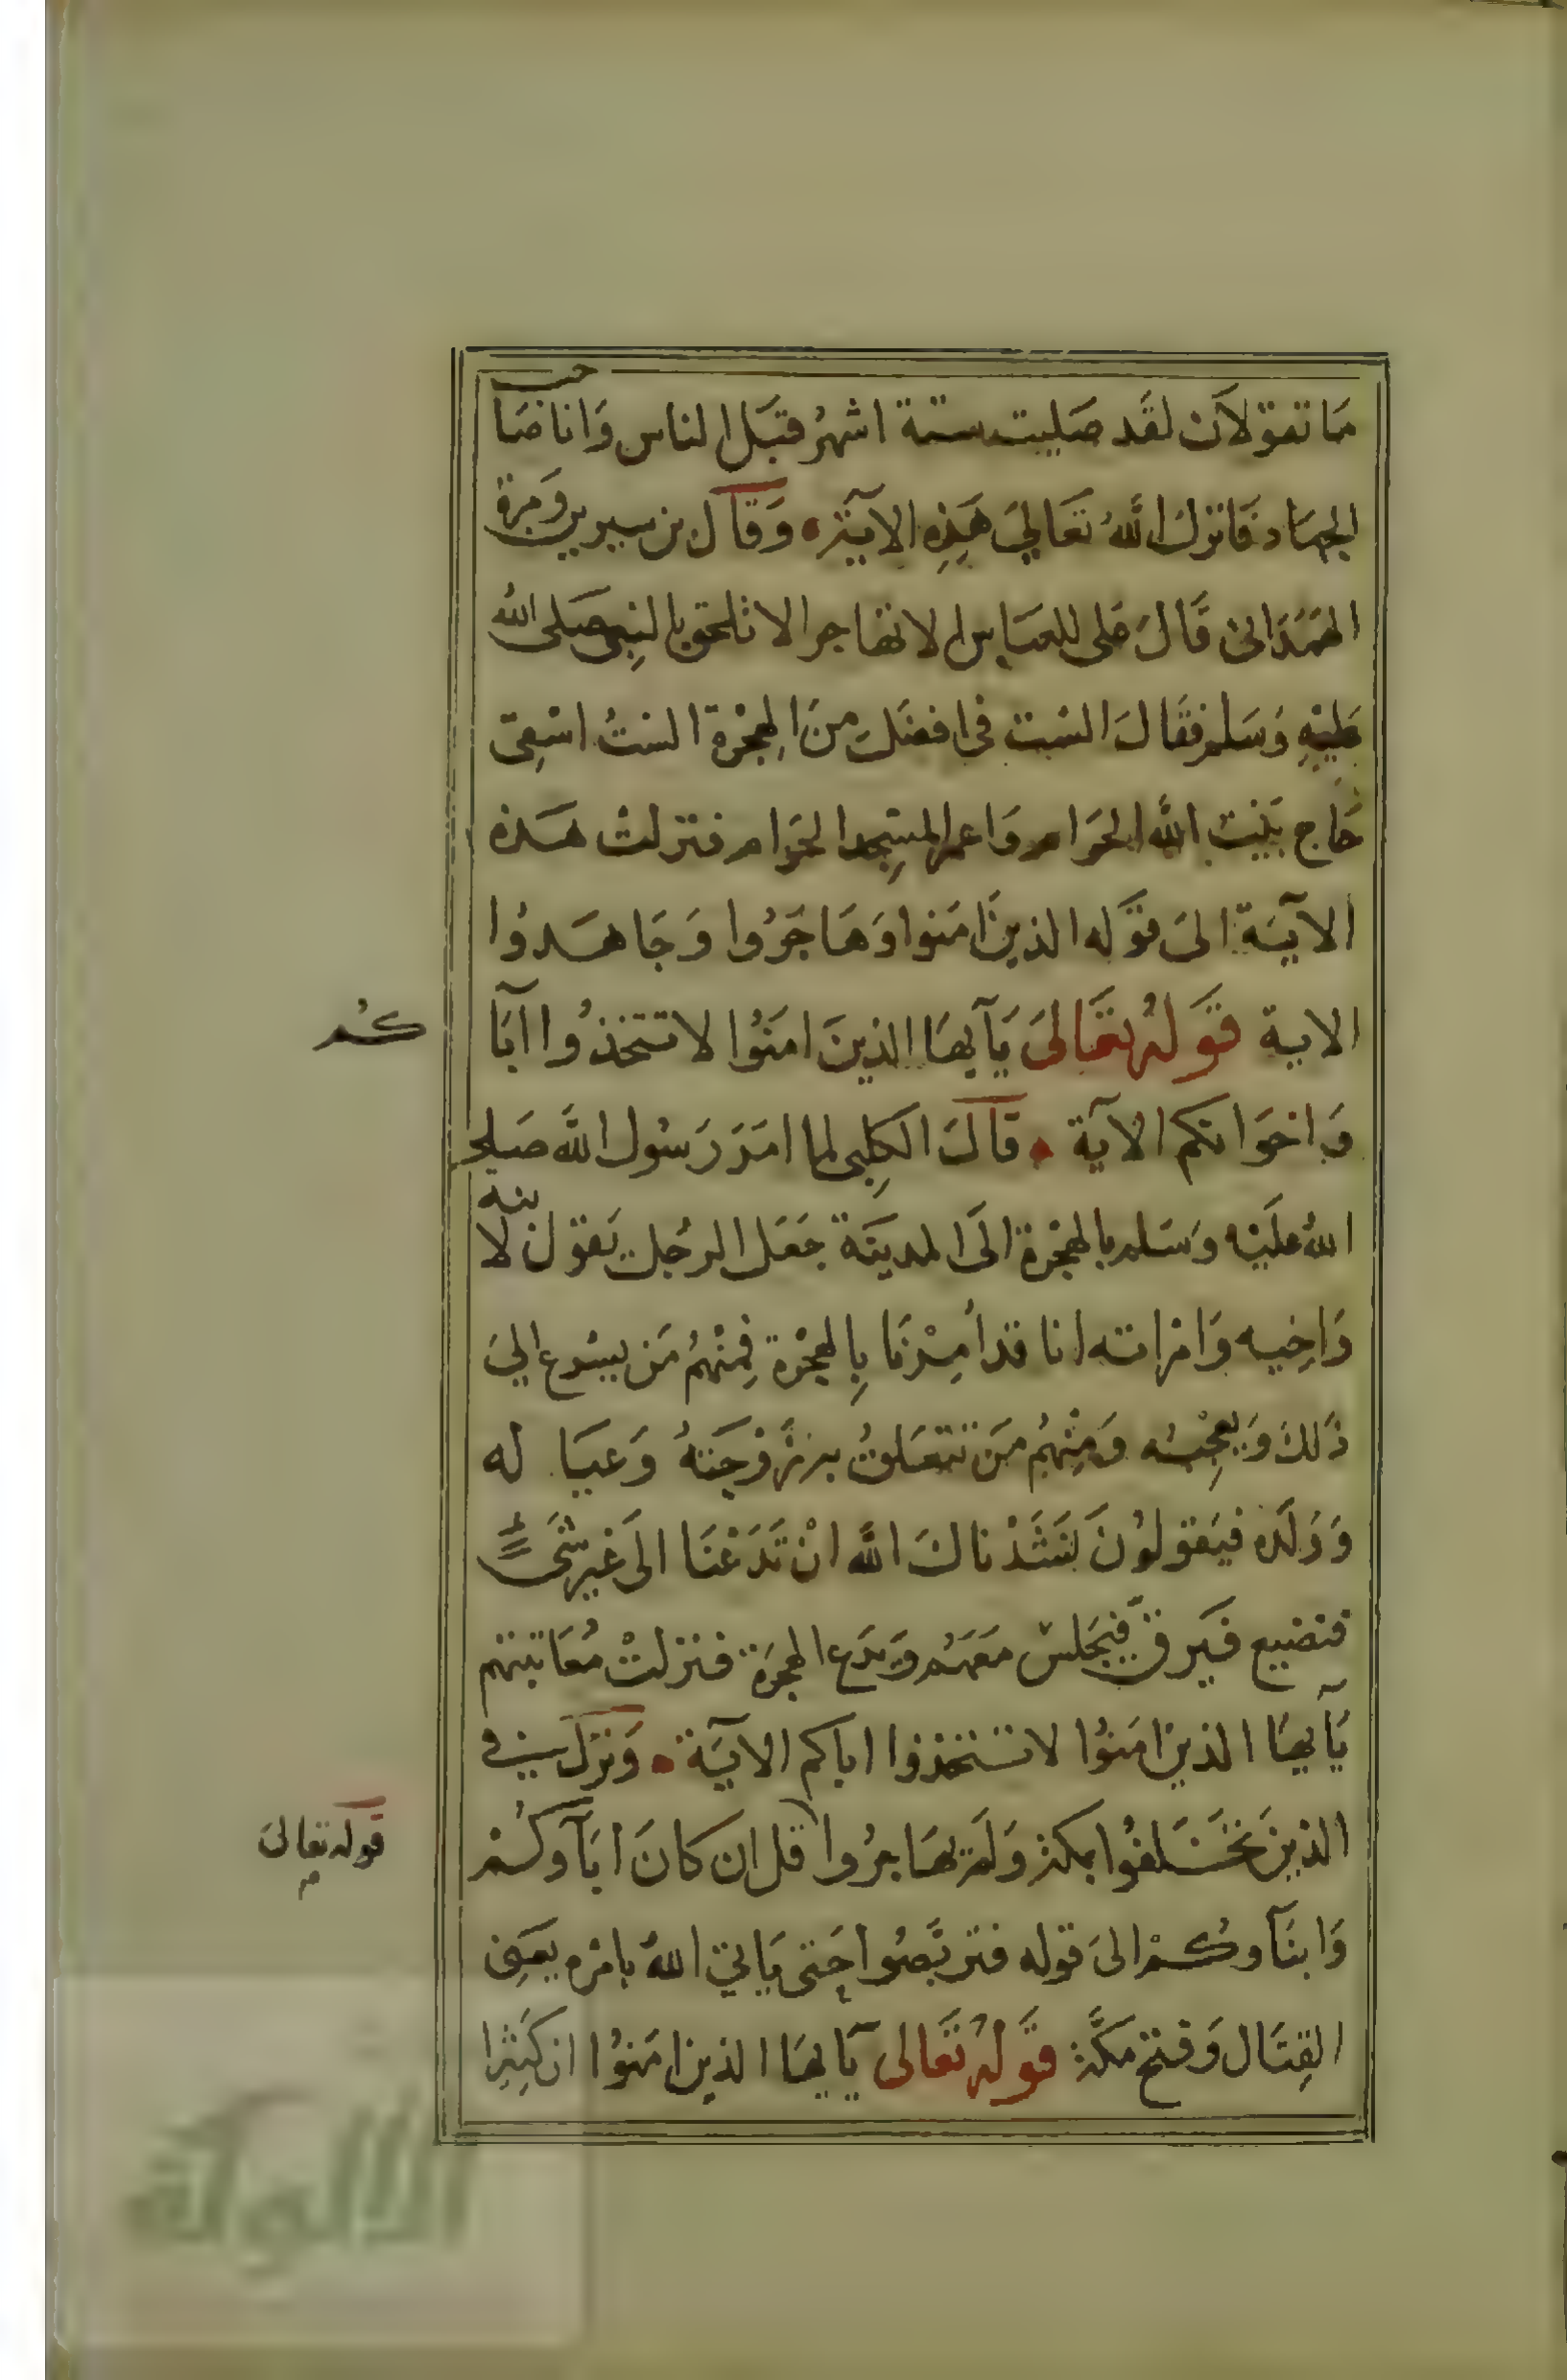 مَا تقولان لقَد صَليت ستة اشهرُ قبَل الناس وَانا صَاحب
الجهَاد فَانزل اللهُ تعَالىَ هَذِهِ الآية وَقال بن سيرين وَمرة
الهمَدانى قَالَ على للعبَاس الا تهَاجر الا تلحق بالنبِى صَلى الله
عَليْهِ وَسَلم فقَالَ الستُ فى افضَلَ مِنَ الهِجْرة السْتُ اسْقِى
حَاج بَيْت الله الحرَام وَاعمر المسِجد الحرَام فنزلتْ هَذه
الآيَة الىَ قوَله الذينَ امَنوا وَهَاجَرُوا وَجَاهَدُوا
الاية قوَلهُ تعَالىَ يَآيهَا الذينَ امَنُوا لا تتخذُوا آبَا
كُم
وَاخوَانكم الآية قالَ الكلِبى لما امَرَ رَسُول الله صَلى
اللهُ علَيْه وَسَلم بالهجْرة الىَ المدينَة جَعَل الرجُل يَقول لابنه
وَاخِيه وَامْراته انا قد أمِرْنَا بِالهجْرة فِمنْهُم مَن يسْرع الىَ
ذَلكَ وَيعجِبُه وَمنْهُم مَن تتعَلقُ به زَوْجَتهُ وَعيَاله
وَوَلَده فيَقولوُنَ نَنشَدْناكَ الله انْ تَدَعْنَا الى غَير شَىًء
فنضيع فَيَرق فيَجَلسْ مَعَهَم وَيدَع الهجرَة فنزلتْ مُعَاتبَتهم
يَآيهَا الذين امَنوُا لا تتخذوا اباكم الآيَة وَنزَل في
الذينَ تخَلفوُا بمكة وَلَم يهَاجرُوا قل ان كانَ ابَآوكُمْ
قوله تعالىَ
وَابنَآوكُمْ الىَ قوله فترَبَّصُوا حَتى يَاتىَ اللهُ بامْره يعَنِى
القِتَال وَفتح مَكَّة قوَلهُ تَعَالى يَآيهَا الذين امَنوُا ان كَثيرا